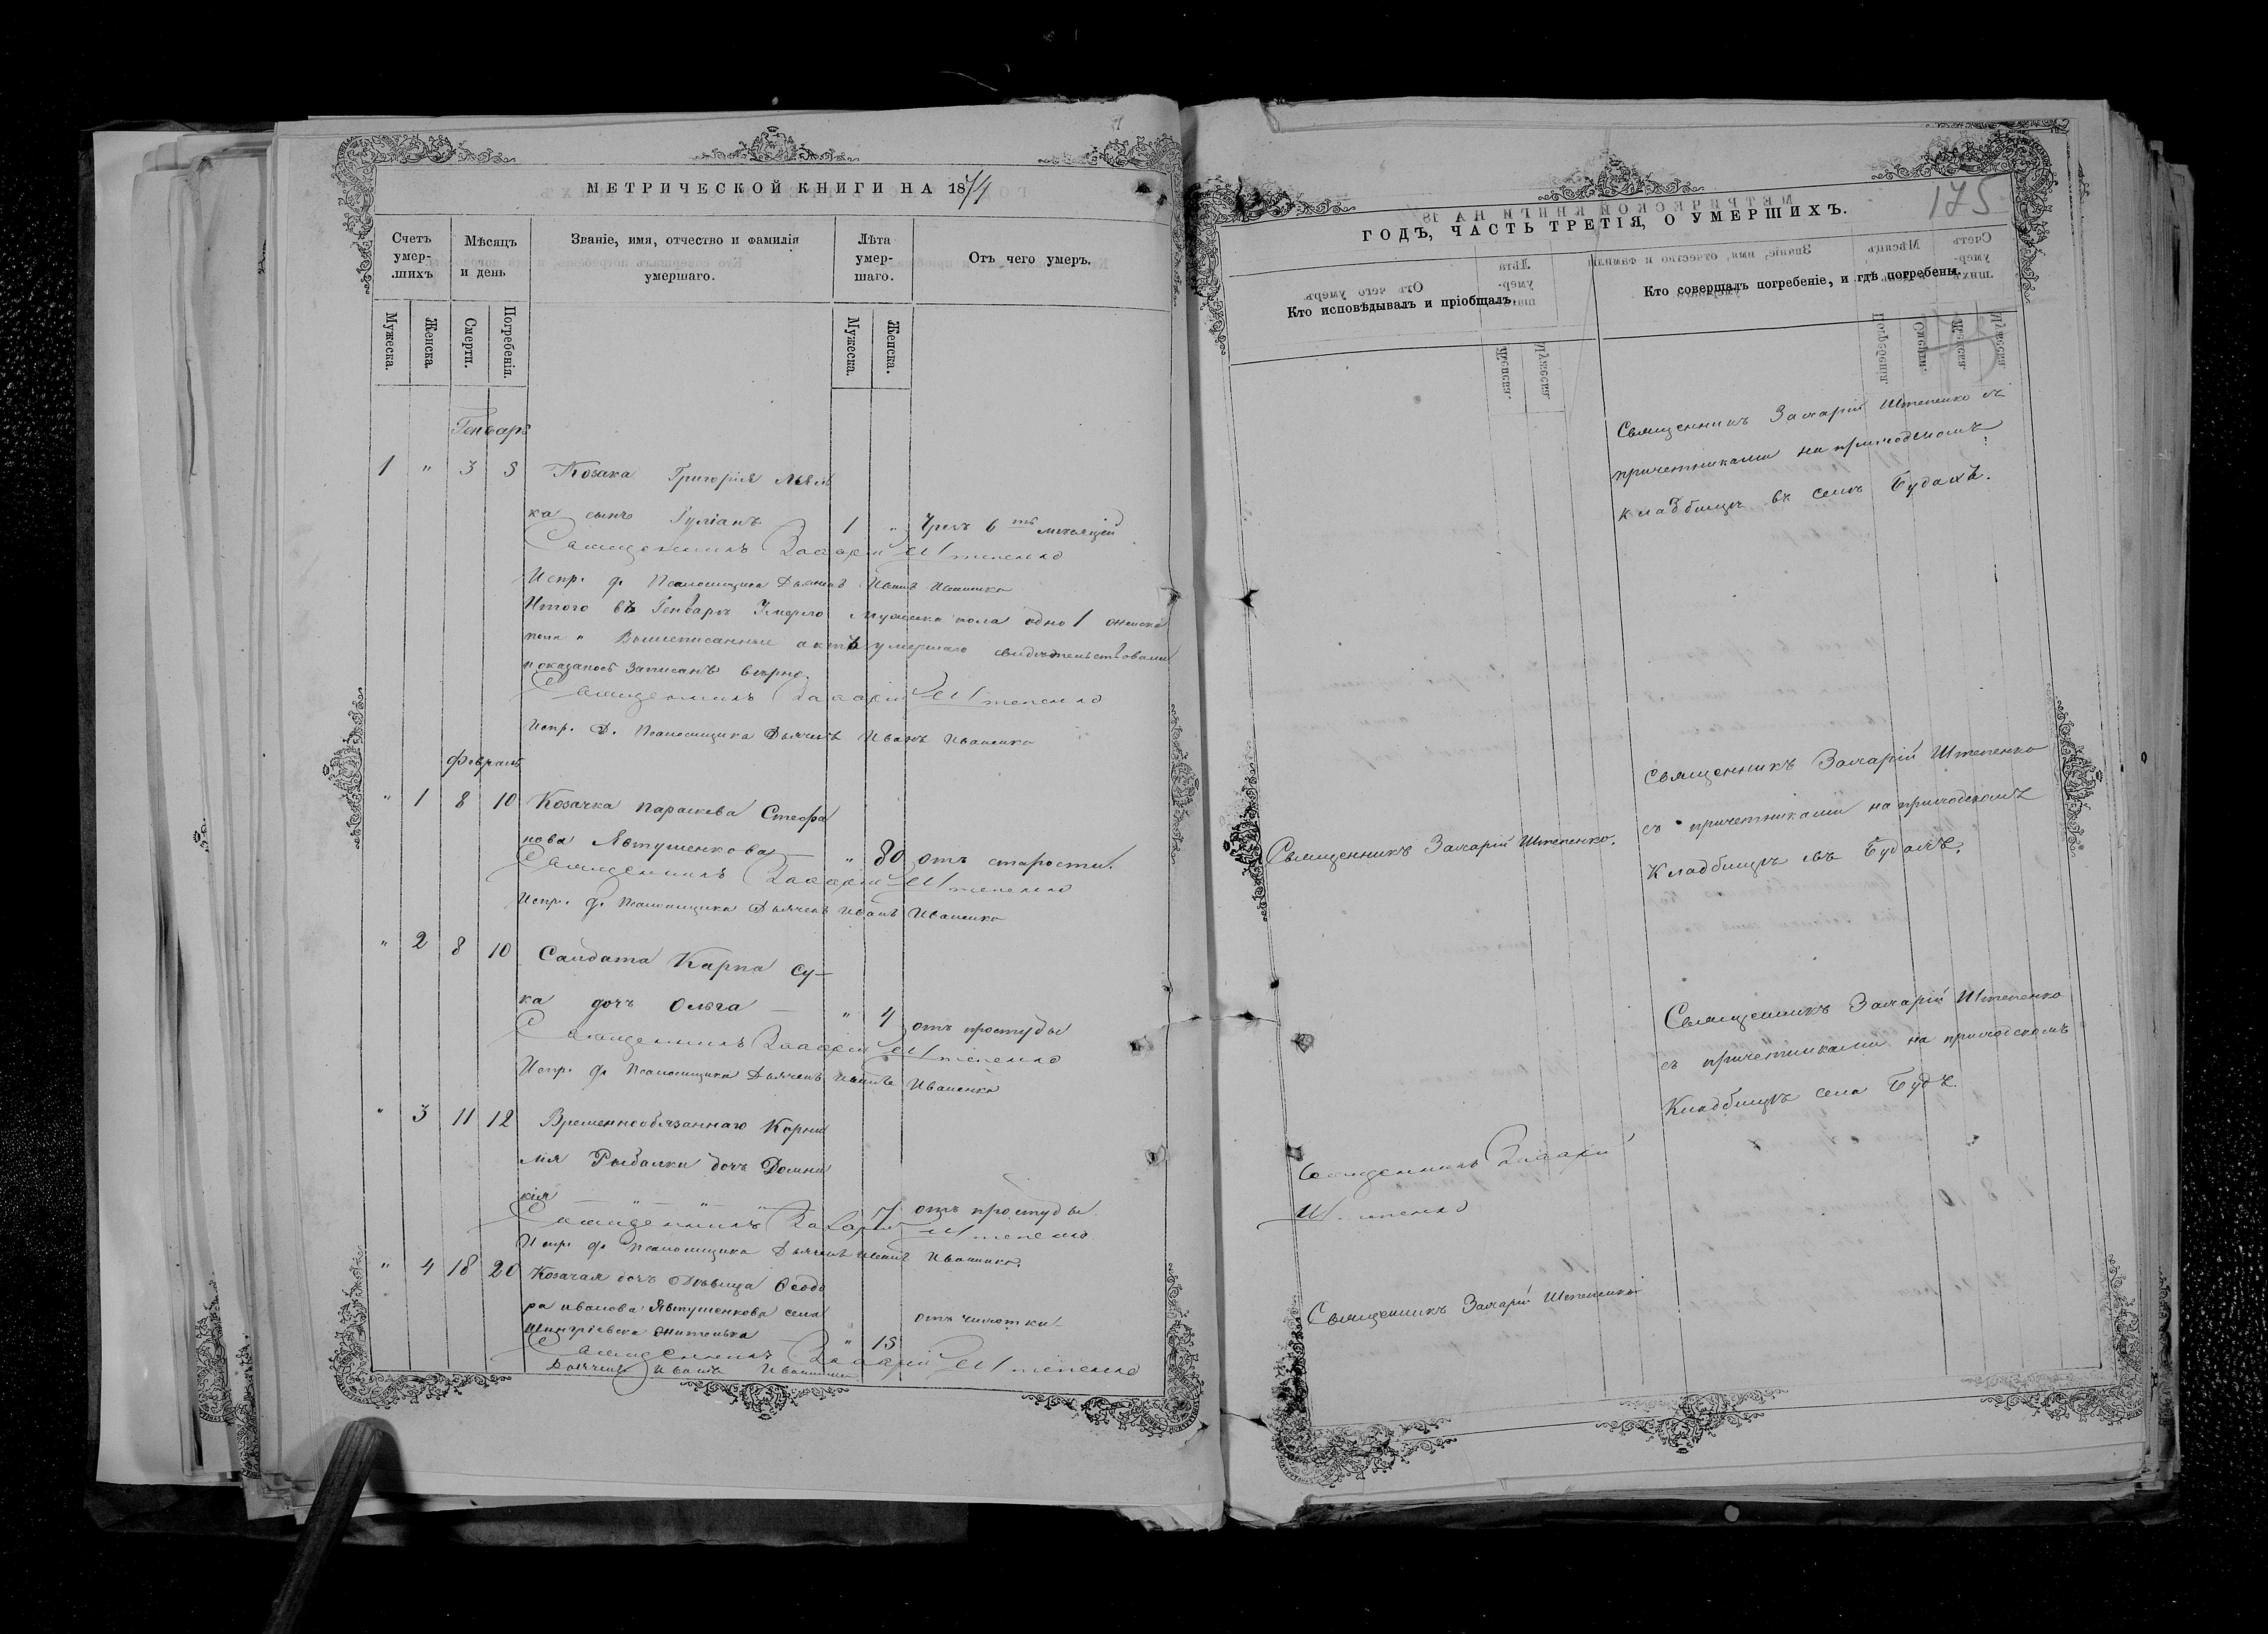 МЕТРИЧЕСКОЙ КНИГИ НА 1874
Счетъ умер-шихъ
Мѣсяцъ и день
Званіе, имя, отчество и фамилія умершаго.
Лѣта умер-шаго.
Отъ чего умеръ.
Мужеска.
Женска.
Смерти.
Погребенія.
Мужеска.
Женска.
Генварь
1 " 3 5 Козака Григорія
ка сынъ Іуліанъ 1 " Чрезъ 6 ть мѣсяцей
Священникъ Захарій Штепенко
Испр. д. Псаломщика Дьячекъ Иванъ Иваненко
Итого въ Генварѣ Умерло мужеска пола одно 1 женска
пола " Вышеписанный актъ умершаго свидѣтельствовали
показаніе записанъ вѣрно.
Священникъ Захарій Штепенко
Испр. Д. Псаломщика Дьячекъ Иванъ Иваненко
Февраль
" 1 8 10 Козачка Параскева Стефа
нова Явтушенкова " 80 отъ старости.
Священникъ Захарій Штепенко
Испр. д. Псаломщика Дьячекъ Иванъ Иваненко
" 2 8 10 Салдата Карпа Су-
ка дочь Ольга — " 4 отъ простуды
Священникъ Захарій Штепенко
Испр. д. Псаломщика Дьячекъ Иванъ Иваненко
" 3 11 12 Временнообязаннаго Корни
лія Рыбалки дочь Домни
кія 7 отъ простуды
Священникъ Захарій Штепенко
Испр. д. Псаломщика Дьячекъ Иванъ Иваненко.
" 4 18 20 Козачая дочь Дѣвица Феодо
ра Иванова Явтушенкова села
жителька " 15 отъ чихотки
Священникъ Захарій Штепенко
Дьячекъ Иванъ Иваненко
175
ГОДЪ, ЧАСТЬ ТРЕТІЯ, О УМЕРШИХЪ.
Кто исповѣдывалъ и пріобщалъ.
Кто совершалъ погребеніе, и гдѣ погребены.
Священникъ Захарій Штепенко съ
причетниками на приходскомъ
кладбищѣ въ селѣ Будахъ.
Священникъ Захарій Штепенко
съ причетниками на приходскомъ
Священникъ Захарій Штепенко.
Кладбищѣ въ Будахъ.
Священникъ Захарій Штепенко
съ причетниками на приходскомъ
Кладбищѣ села Будъ.
Священникъ Захарій
Штепенко
Священникъ Захарій Штепенко